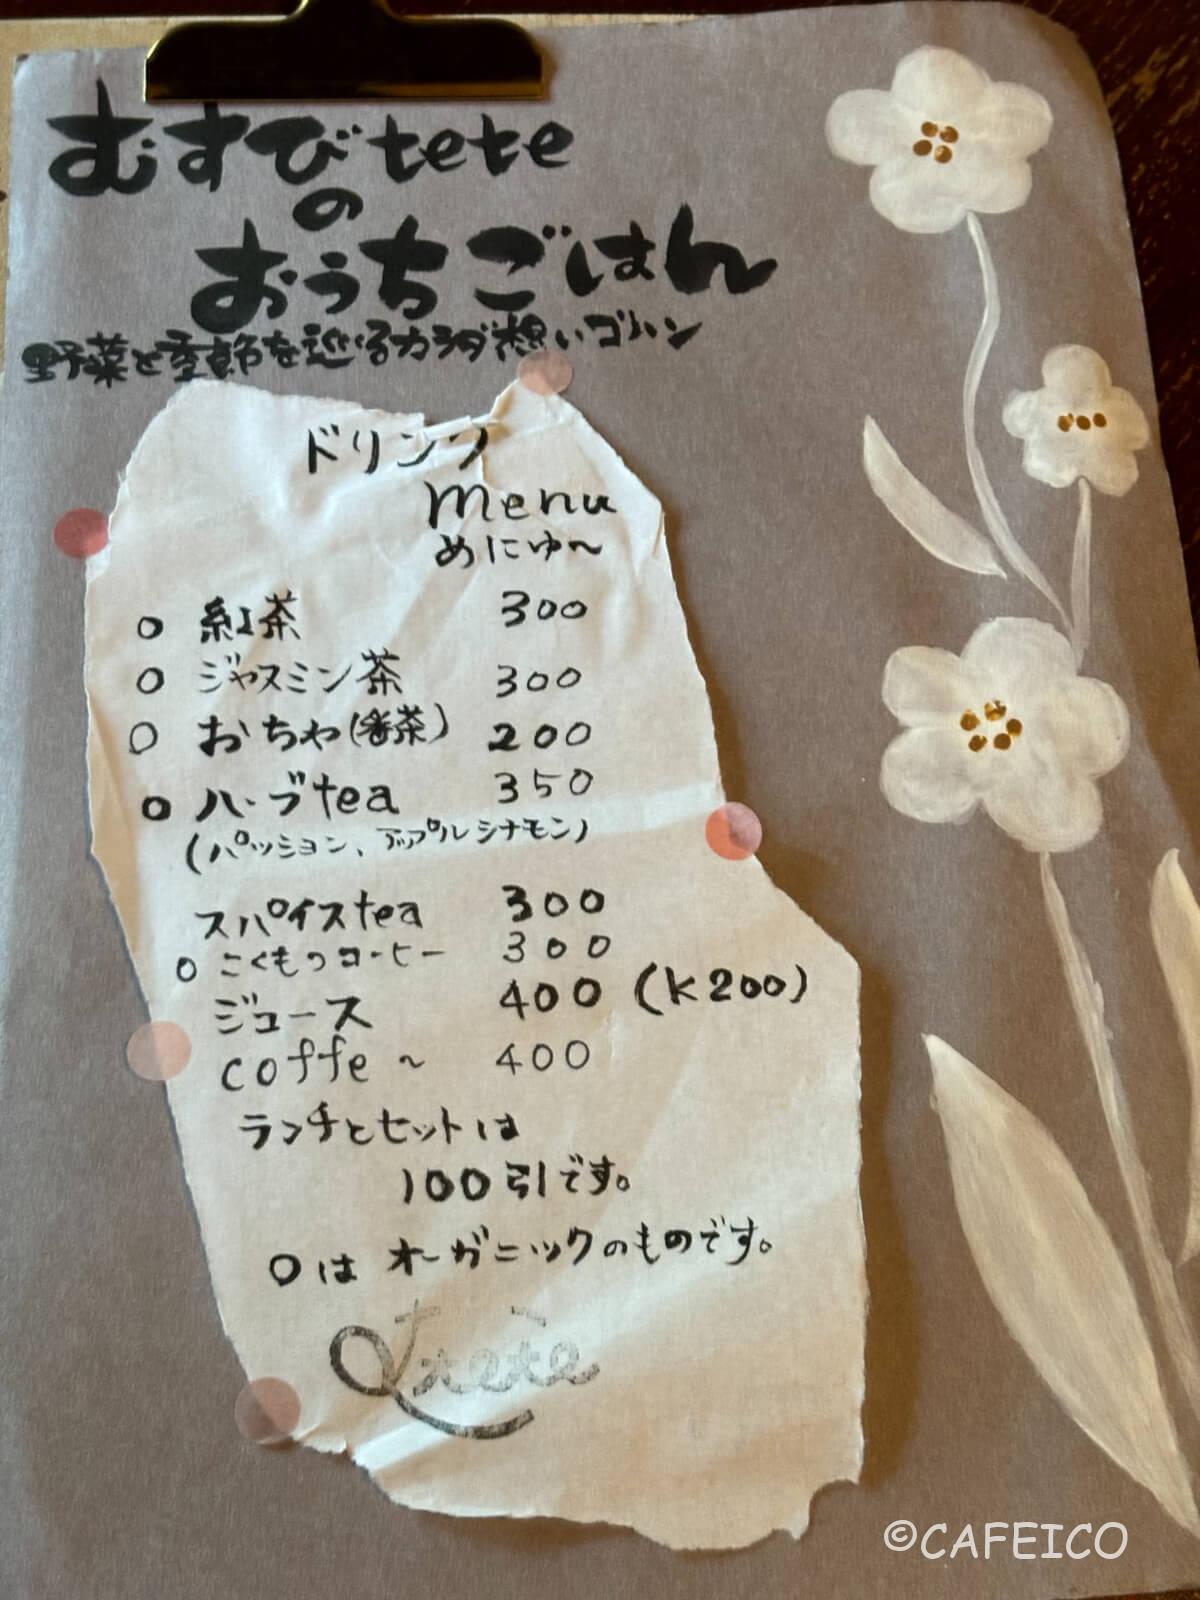 むすび tete
の
おうちごはん
野菜と季節を巡るカラダ想いゴハン
ドリンク
menu
めにゅ～
○ 紅茶 300
○ ジャスミン茶 300
○ おちゃ(番茶) 200
○ ハーブtea 350
(パッション、アップルシナモン)
スパイスtea 300
○ こくもつコーヒー 300
ジュース 400 (K200)
coffe ～ 400
ランチとセットは
100引です。
○は オーガニックのものです。
tete
©CAFEICO